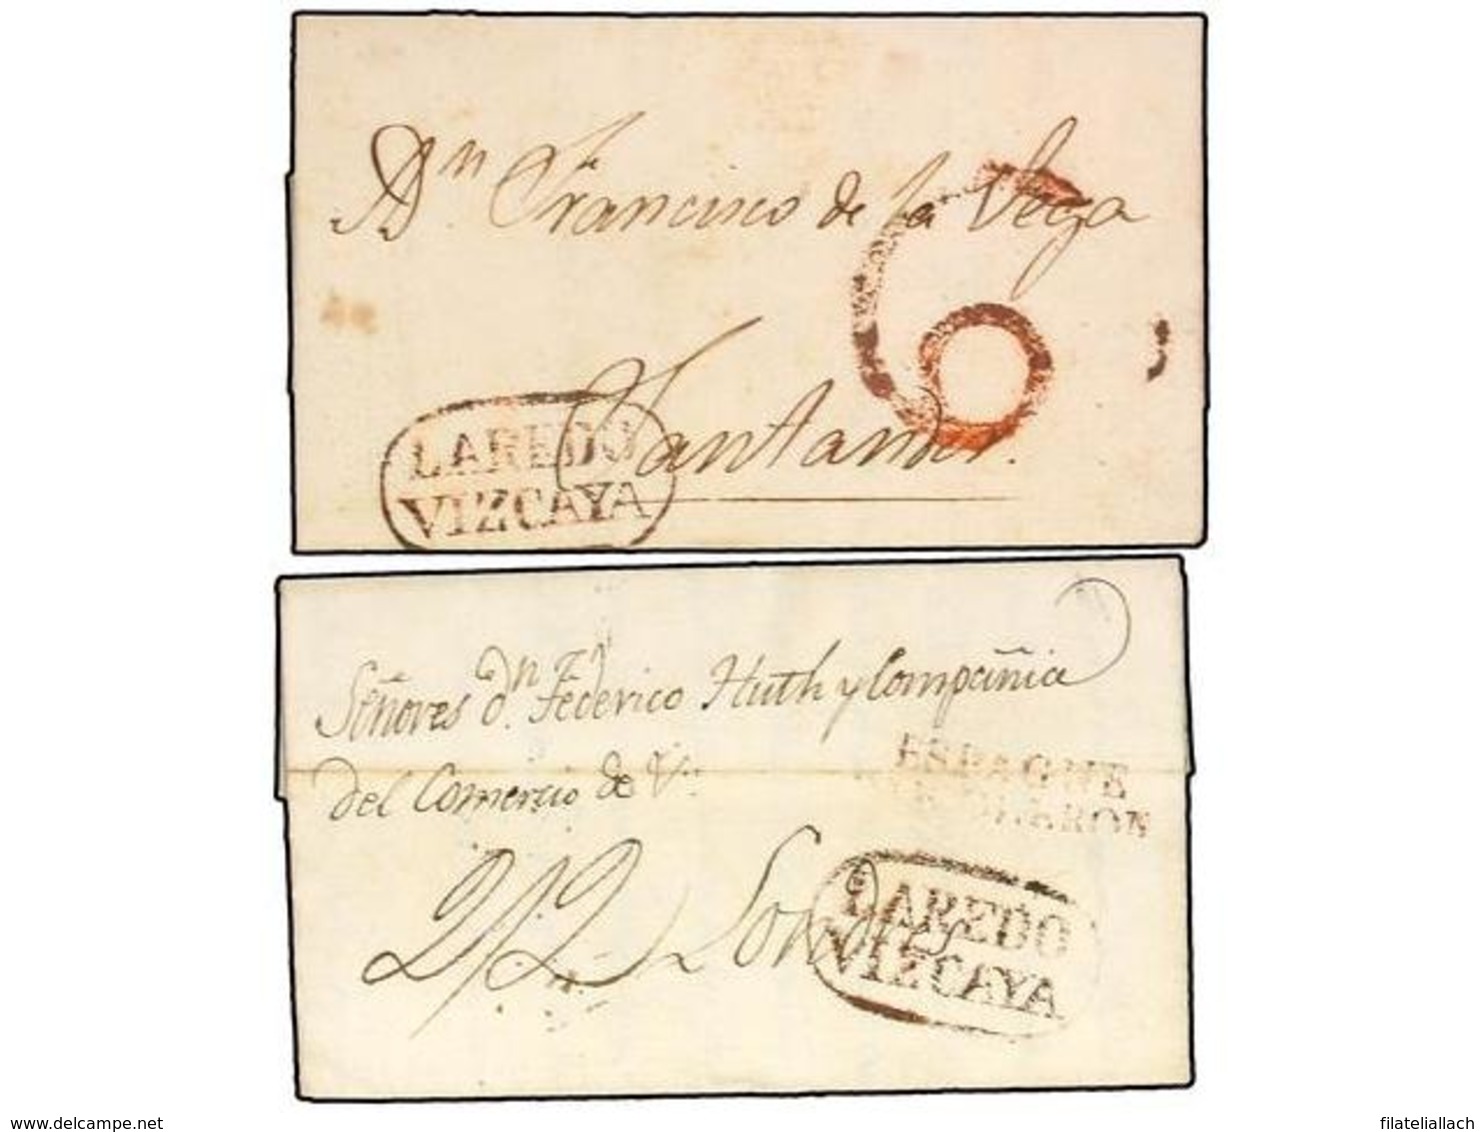 Dn. Francisco de la Vega
6
Santander.
LAREDO
VIZCAYA
Señores dn. Federico Huth y Compañia
del Comercio de
ESPAGNE
2/2 Londres
LAREDO
VIZCAYA
delcampe.net
filateliallach